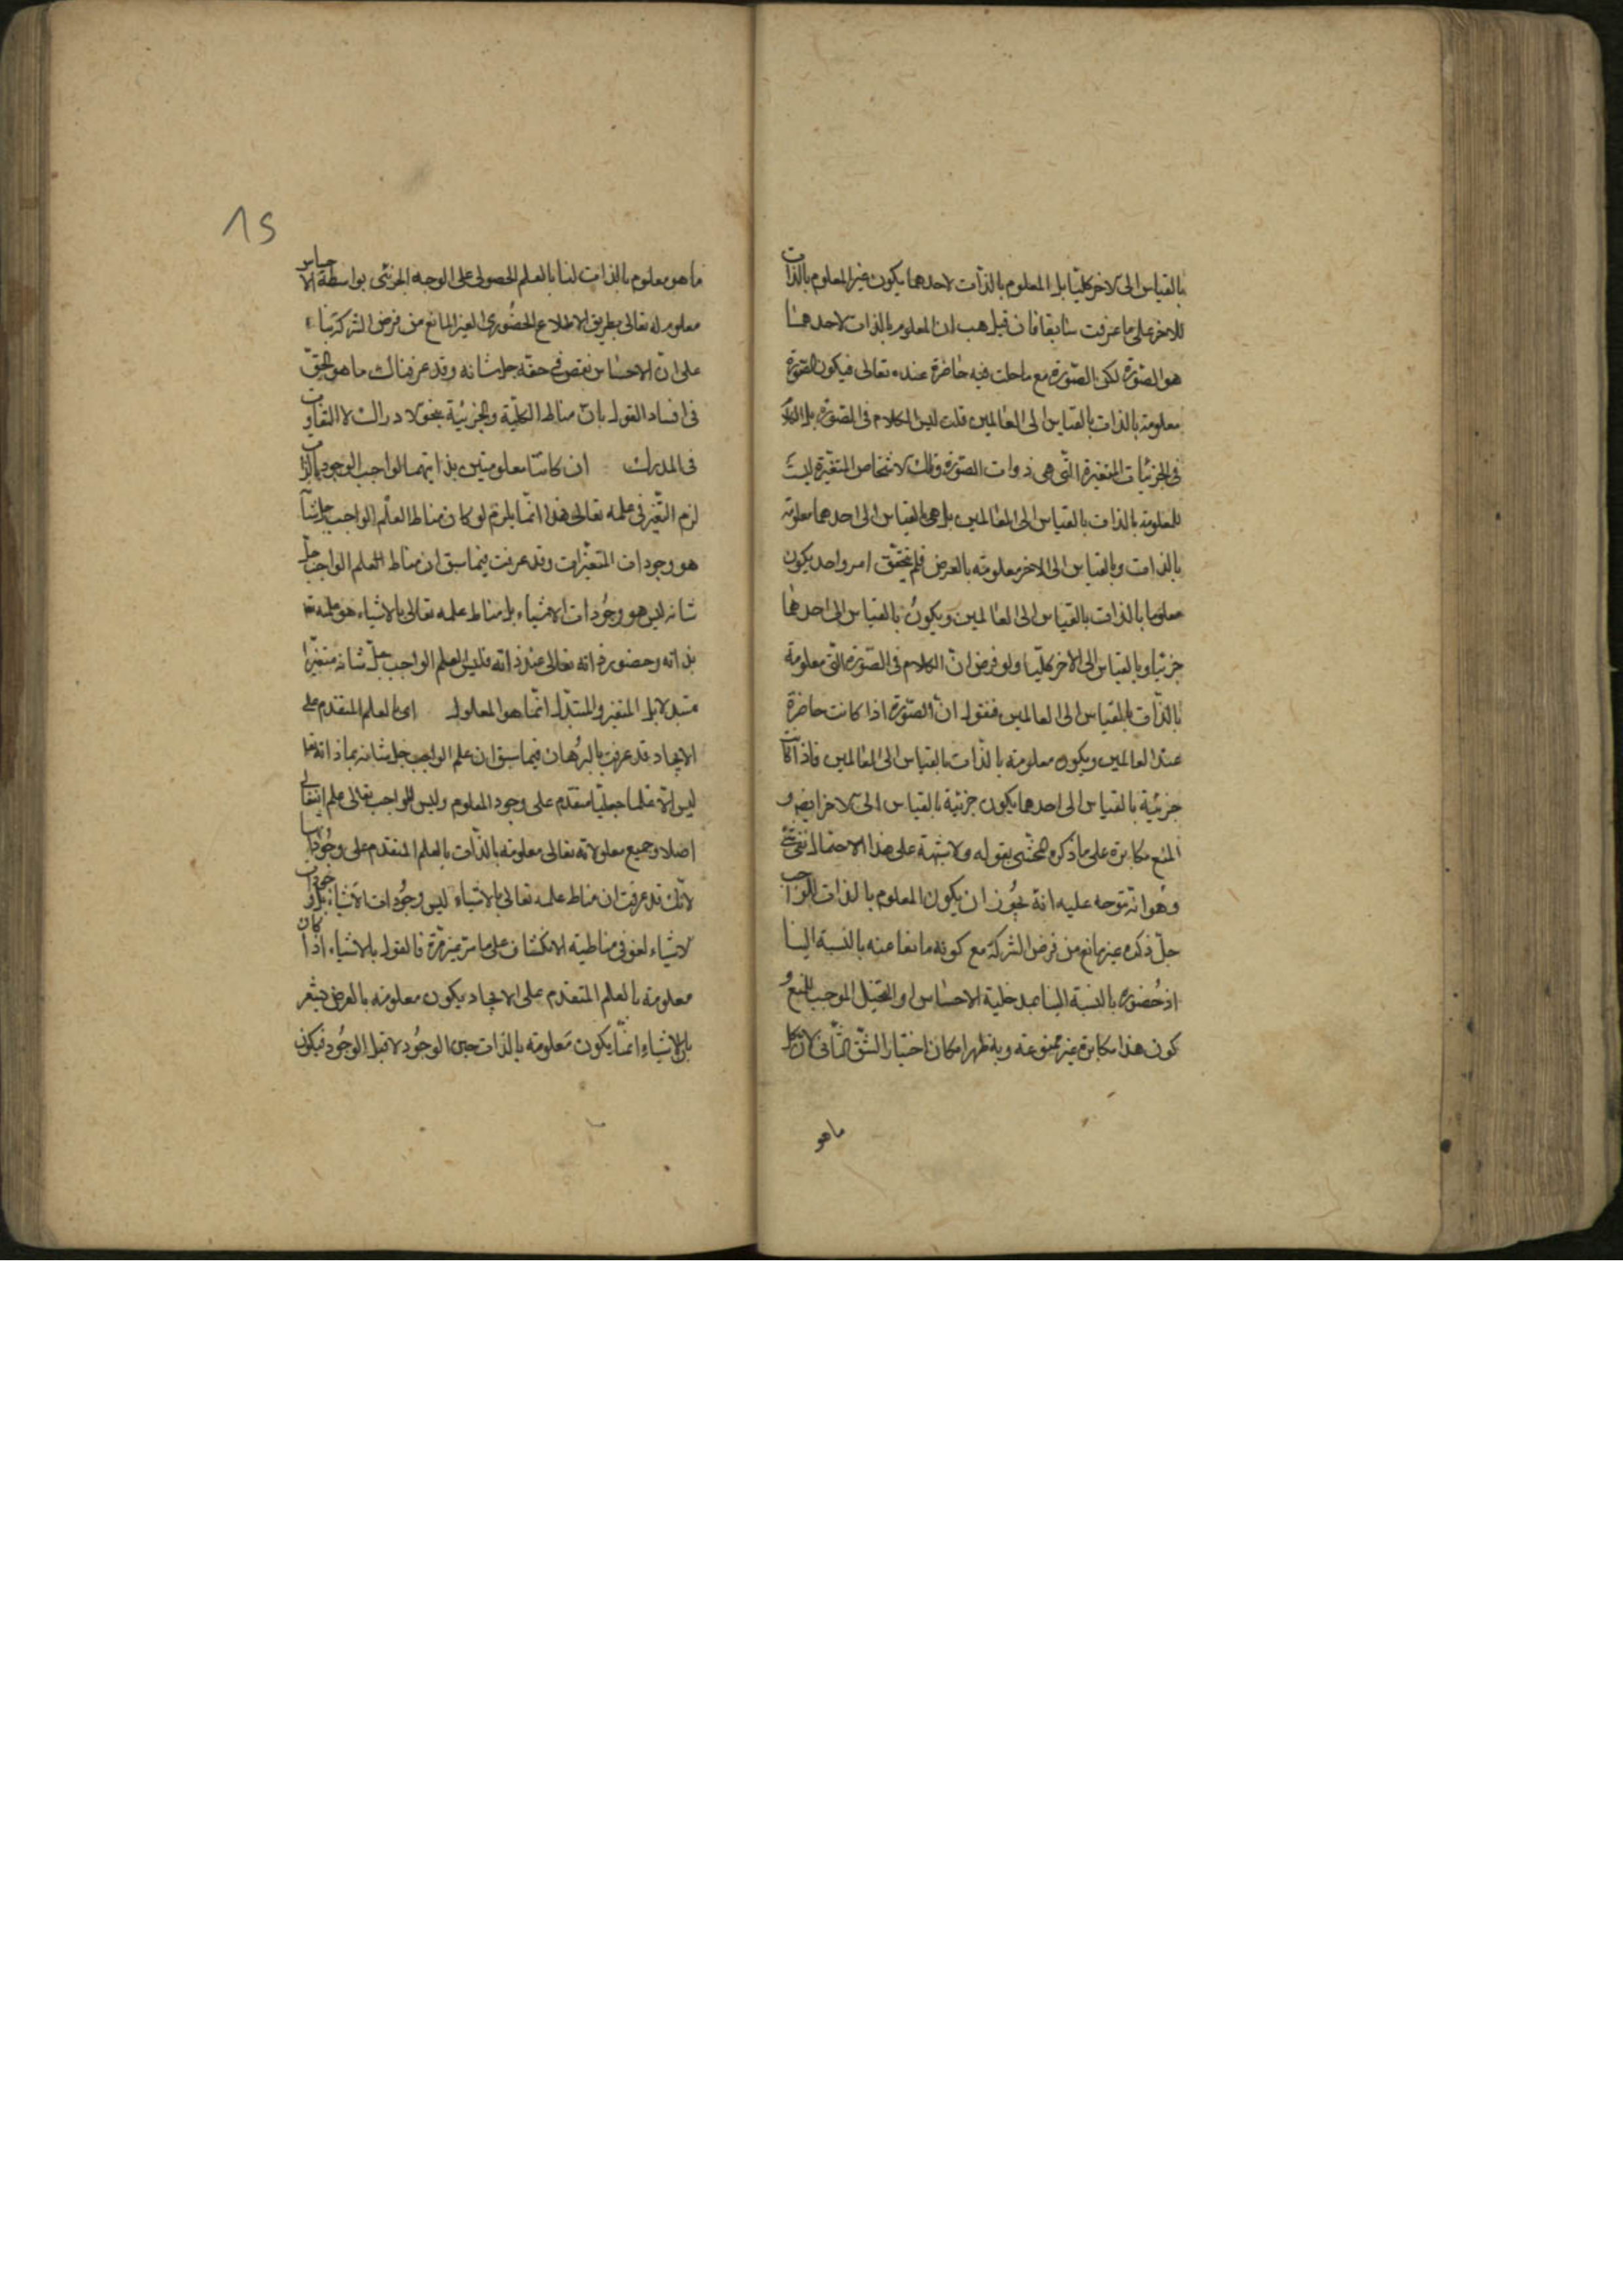 بالقياس الى الاخر كليّا بل المعلوم بالذات لاحدهما يكون غير المعلوم بالذات
للاخر على ما عرفت سابقا فان قيل هب ان المعلوم بالذات لاحدهما
هو الصّورة لكن الصّورة مع ما حلت فيه حاضرة عنده تعالى فيكون الصّورة
معلومة بالذات بالقياس الى العالمين قلت ليس الكلام فى الصّورة بل الكلام
فى الجزئيات المتغيرة التّى هى ذوات الصّورة وتلك الاشخاص المتغيّرة ليست
معلومة بالذات بالقياس الى العالمين بل هى بالقياس الى احدهما معلومة
بالذات وبالقياس الى الاخر معلومة بالعرض فلم يتحقق امر واحد يكون
معلوما بالذات بالقياس الى العالمين ويكون بالقياس الى احدهما
جزئيا وبالقياس الى الاخر كليّا ولو فرض انّ الكلام فى الصّورة التّى معلومة
بالذّات بالقياس الى العالمين فنقول انّ الصّورة اذا كانت حاضرة
عند العالمين ويكون معلومة بالذّات بالقياس الى العالمين فاذا كانت
جزئية بالقياس الى احدهما يكون جزئية بالقياس الى الاخر ايضا و
المنع مكابرة على ما ذكره المحشّى بقوله ولا شبهة على هذا الاحتمال شئ
وهو انه يتوجه عليه انه يجُوز ان يكون المعلوم بالذات للواجب
جلّ ذكره غير مانع من فرض الشركة مع كونه مانعا عنه بالنسبة الينا
اذ حُضوره بالنسبة الينا بمدخلية الاحساس او التخيّل الموجب للمنع و
كون هذا مكابرة غير ممنوعة وبه ظهر امكان اختيار الشّق الثّانى لان كل
ما هو
18
ما هو معلوم بالذات لنا بالعلم الحصولى على الوجه الجزئى بواسطة الاحساس
معلوم له تعالى بطريق الاطلاع الحضُورى الغير المانع من فرض الشركة بناء
على انّ الاحساس نقص فى حقه جل شانه وقد عرفناك ما هو الحقّ
فى افساد القول بانّ مناط الكليّة والجزئيّة بنحو الادراك لا التفاوت
فى المدرك ان كانتا معلومتين بذاتهما لواجب الوجود بالذات
لزم التّغير فى علمه تعالى هذا انّما يلزم لو كان مناط العلم الواجب جل شانه
هو وجودات المتغيّرات وقد عرفت فيما سبق ان مناط العلم الواجب جلّ
شانه ليس هو وجُودات الاشياء بل مناط علمه تعالى بالاشياء هو علمه تعا
بذاته وحضور ذاته تعالى عند ذاته فليس العلم الواجب جلّ شانه متغيّرا
متبدلا بل المتغير والمتبدّل انّما هو المعلول اى بالعلم المتقدم على
الايجاد قد عرفت بالبرُهان فيما سبق ان علم الواجب جل شانه بما ذاته تعا
ليس الا علما متقدم على وجود المعلوم وليس للواجب تعالى علم انفعالى
اصلا وجميع معلولاته تعالى معلومة بالذّات بالعلم المتقدم على وجُوداتها
لانّك قد عرفت ان مناط علمه تعالى بالاشياء ليس وجُودات الاشياء بل وجودات
الاشياء لغو فى مناطية الانكشاف على ما مر غير مرّة فالقول بالاشياء اذا كان
معلومة بالعلم المتقدم على الايجاد يكون معلومة بالعرض
بل الاشياء انمّا يكون مَعلومة بالذات حين الوجُود لا قبل الوجُود فيكون